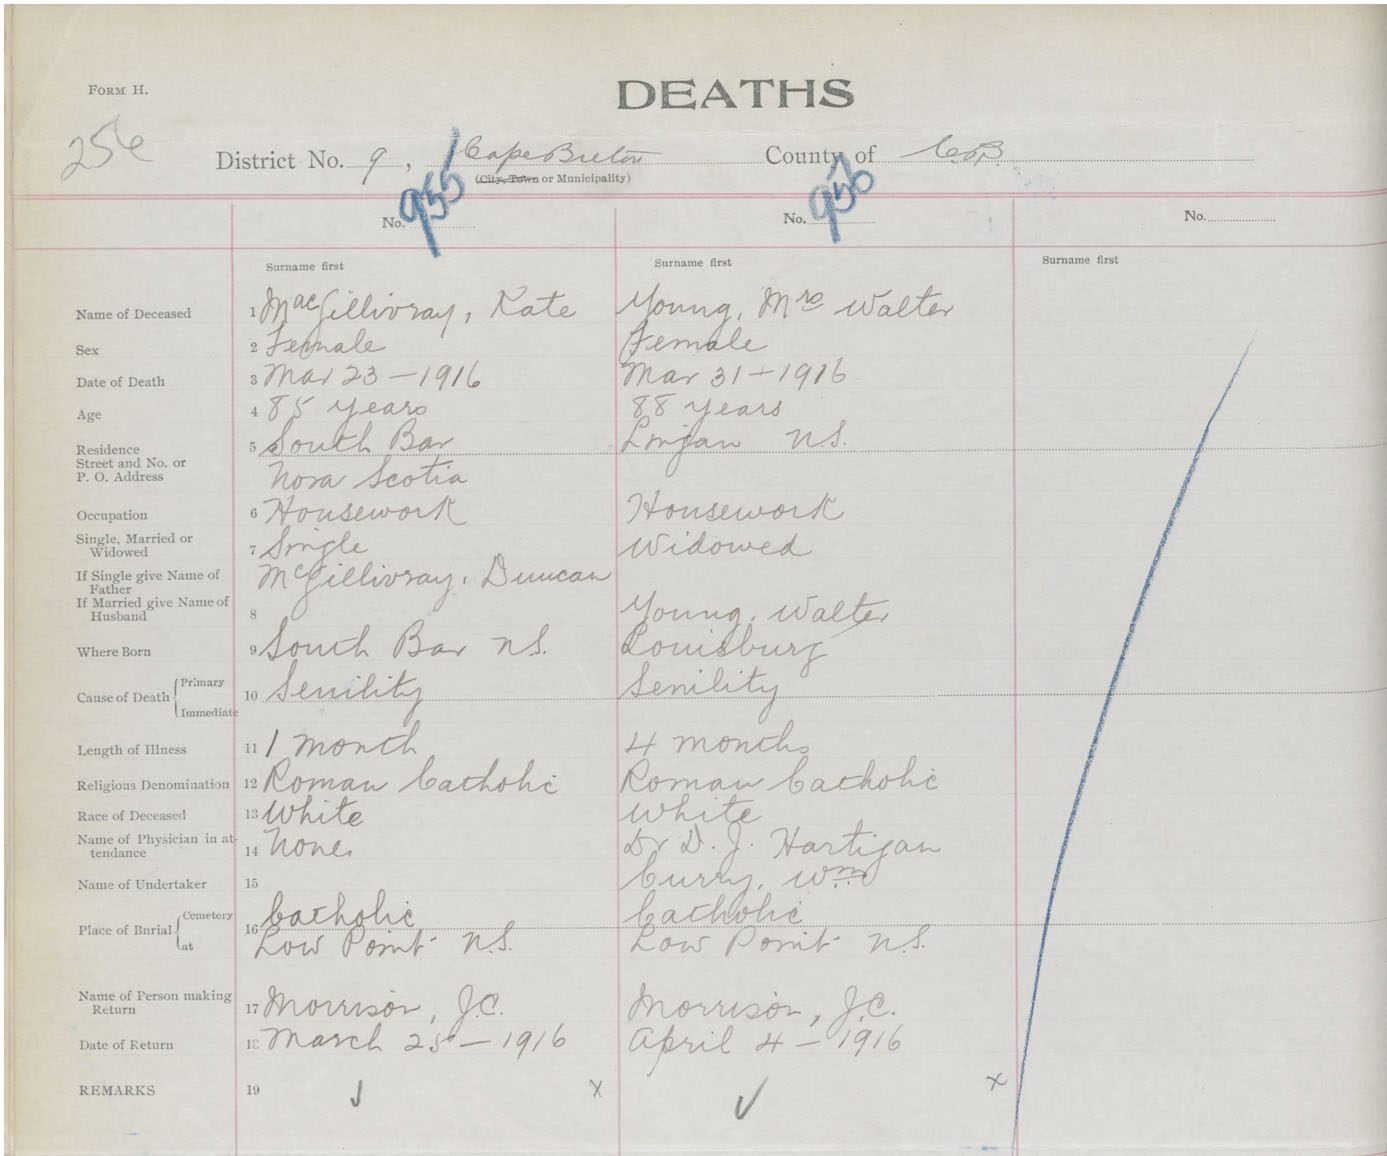 FORM H.
DEATHS
256
District No. 9, Cape Breton County of C.B.
(City, Town or Municipality)
No. 955 No. 956 No.
Surname first Surname first Surname first
Name of Deceased 1 MacGillivray, Kate Young, Mrs Walter
Sex 2 Female Female
Date of Death 3 Mar 23 - 1916 Mar 31 - 1916
Age 4 85 years 88 years
Residence 5 South Bar Lingan N.S.
Street and No. or
P. O. Address Nova Scotia
Occupation 6 Housework Housework
Single, Married or
Widowed 7 Single Widowed
If Single give Name of
Father McGillivray, Duncan
If Married give Name of
Husband 8 Young, Walter
Where Born 9 South Bar N.S. Louisburg
Cause of Death Primary
10 Senility Senility
Immediate
Length of Illness 11 1 month 4 months
Religious Denomination 12 Roman Catholic Roman Catholic
Race of Deceased 13 White White
Name of Physician in at-
tendance 14 None Dr D. J. Hartigan
Name of Undertaker 15 Curry, Wm
Place of Burial Cemetery 16 Catholic Catholic
at Low Point N.S. Low Point N.S.
Name of Person making
Return 17 Morrison, J.C. Morrison, J.C.
Date of Return 18 March 25 - 1916 April 4 - 1916
REMARKS 19 x x